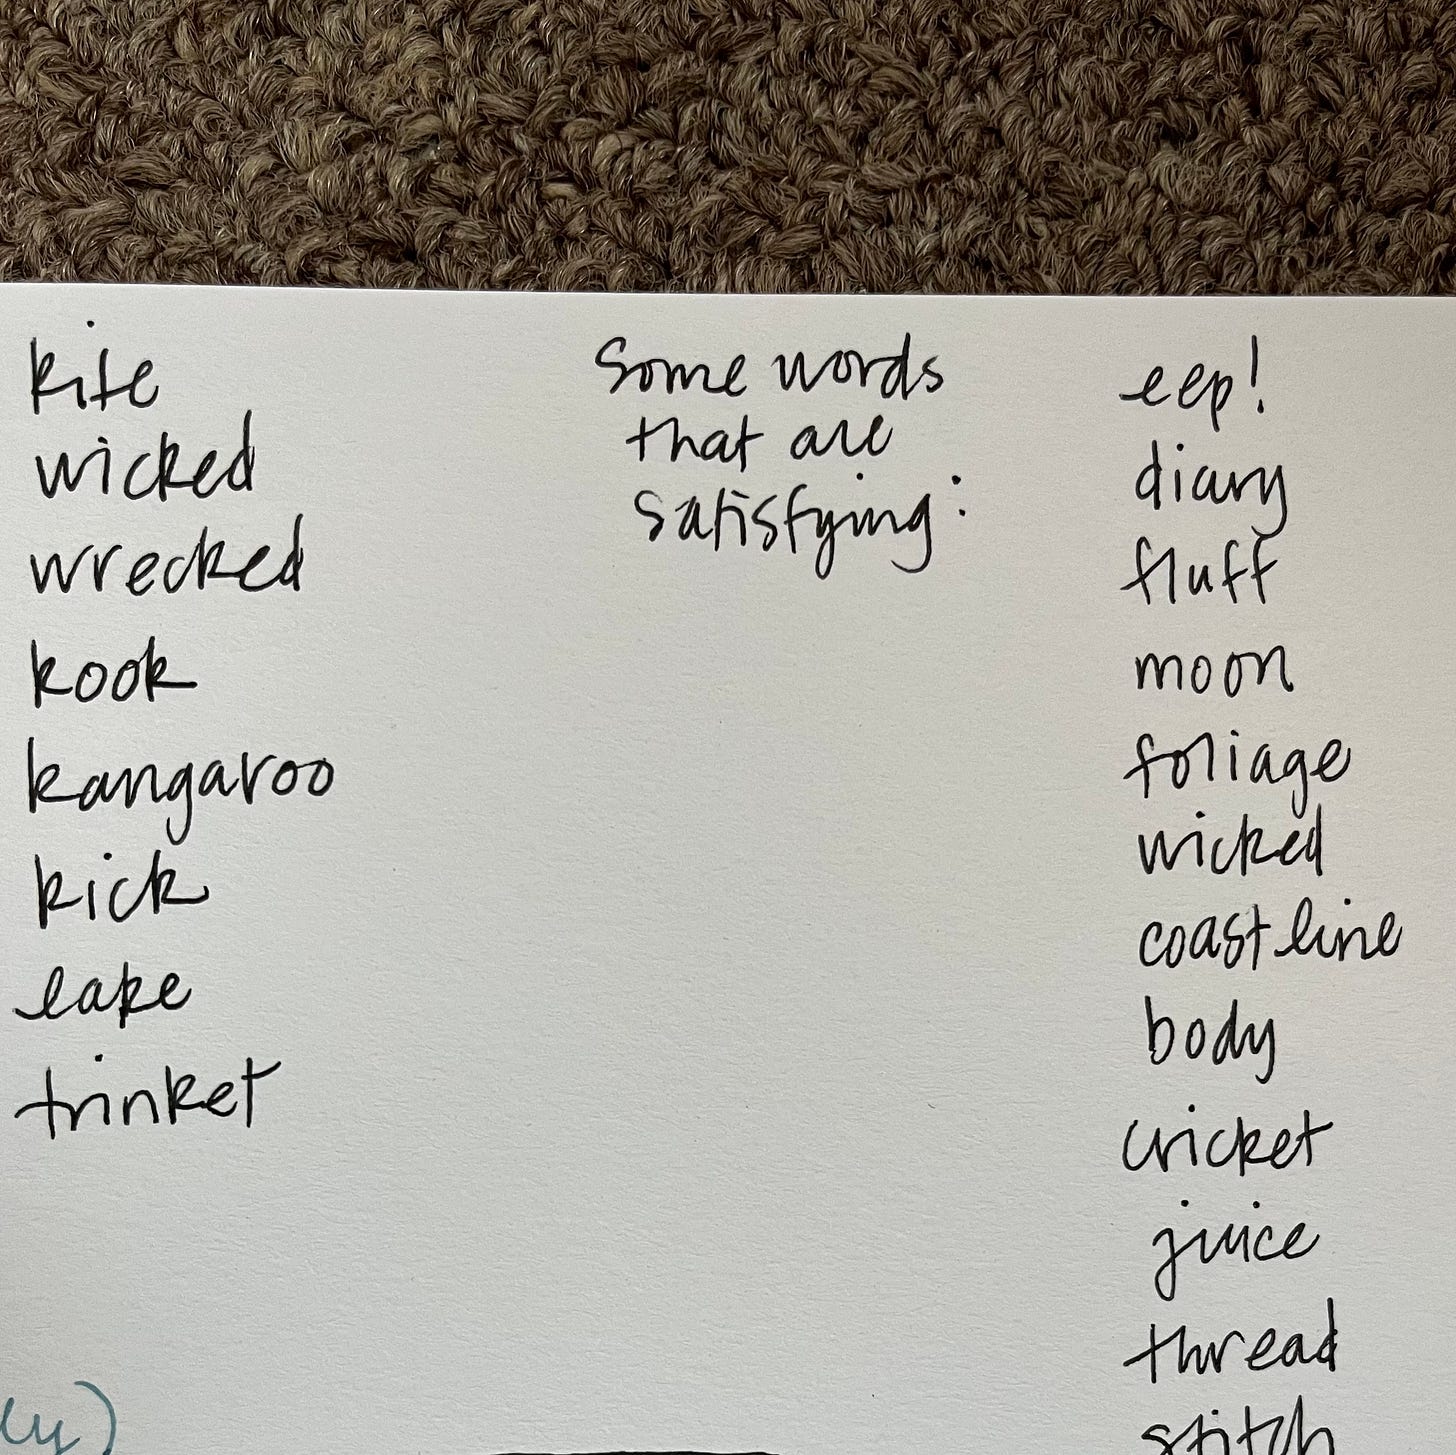 kite
wicked
wrecked
kook
kangaroo
kick
lake
trinket
Some words
that are
satisfying:
eep!
diary
fluff
moon
foliage
wicked
coastline
body
cricket
juice
thread
stitch